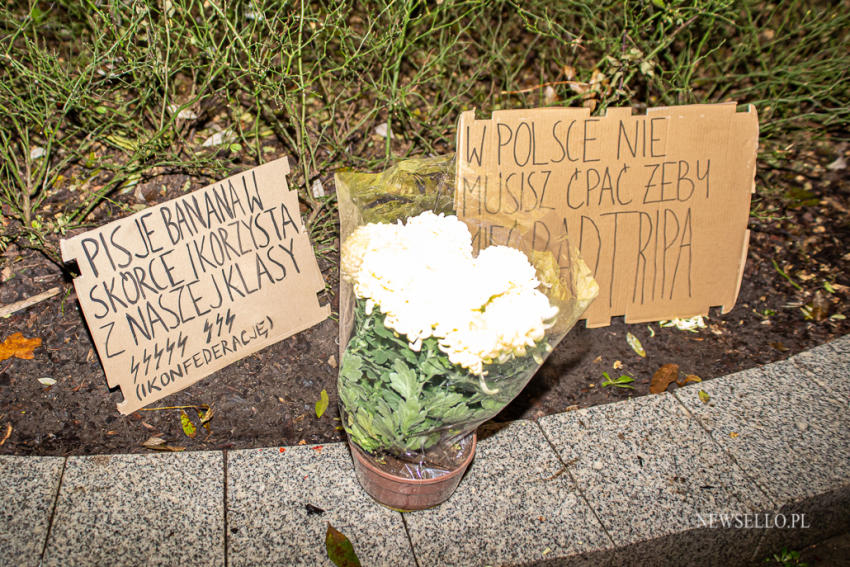 PIS JE BANANA W
SKÓRCE I KORZYSTA
Z NASZEJ KLASY
(I KONFEDERACJĘ)
W POLSCE NIE
MUSISZ ĆPAĆ ŻEBY
MIEĆ BADTRIPA
NEWSELLO.PL